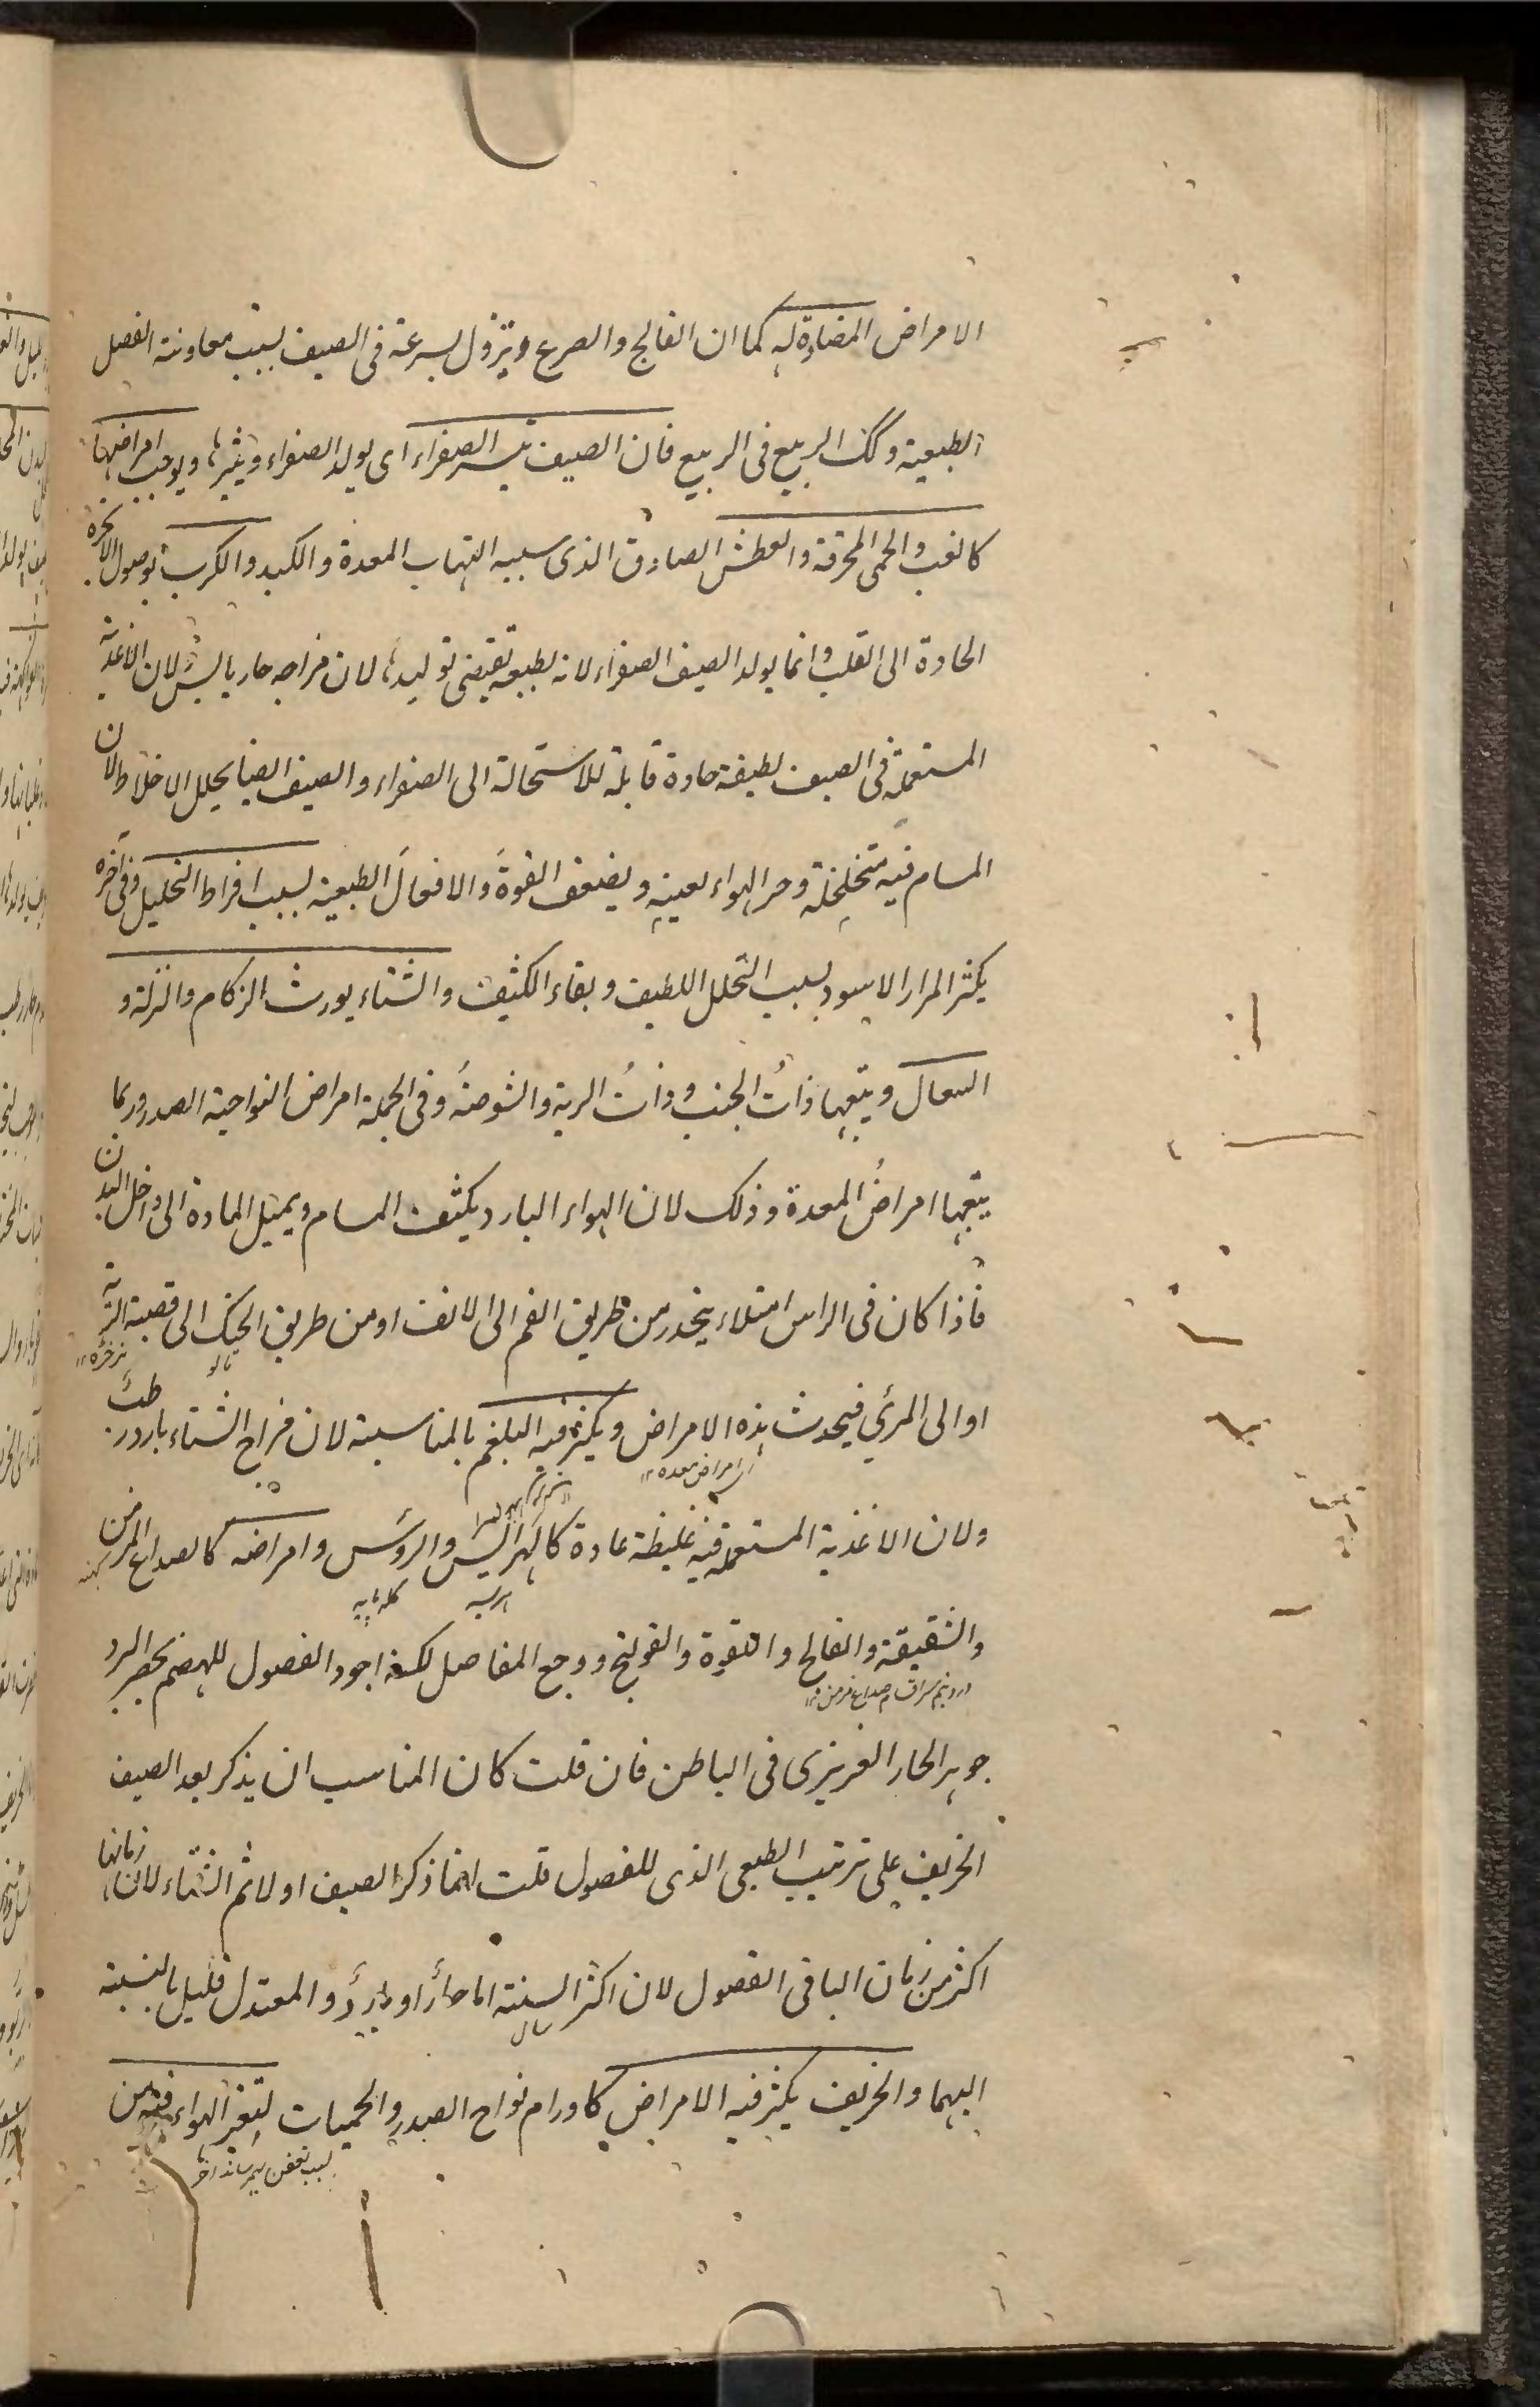 الامراض المضادة له كما ان الفالج والصرع يزول بسرعة فى الصيف بسبب معاونة الفصل
الطبيعية وكك الربيع فى الربيع فان الصيف يثير الصفراء اى يولد الصفراء ويثيرها ويوجب امراضها
كالغب والحمى المحرقة والعطش الصادق الذى سببه التهاب المعدة والكبد والكرب لوصول الابخرة
الحادة الى القلب وانما يولد الصيف الصفراء لانه بطبعه يقتضى توليدها لان مزاجه حار يابس لان الاغذية
المستعملة فى الصيف لطيفة حادة قابلة للاستحالة الى الصفراء والصيف ايضا يحلل الاخلاط لان
المسام فيه متخلخلة وحر الهواء يعينه ويضعف القوة والافعال الطبيعية بسبب افراط التحليل وفى آخره
يكثر المرار الاسود بسبب التحلل اللطيف وبقاء الكثيف والشتاء يورث الزكام والنزلة و
السعال ويتبعها ذات الجنب وذات الرية والشوصة وفى الجملة امراض النواحية الصدر وربما
يتبعها امراض المعدة وذلك لان الهواء البارد يكثف المسام ويميل المادة الى داخل البدن
فاذا كان فى الراس امتلاء ينحدر من طريق الفم الى الانف او من طريق الحنك الى قصبة الرية
تالو
نرخره
او الى المرئ فيحدث هذه الامراض ويكثر فيه البلغم بالمناسبة لان مزاج الشتاء بارد رطب
امراض معده
ولان الاغذية المستعملة فيه غليظة عادة كالهرايس والروس وامراضه كالصداع المزمن
كهنه
هريسه
كله پايه
والشقيقة والفالج واللقوة والقولنج ووجع المفاصل لكنه اجود الفصول للهضم بحصر البرد
درد نيم سر صداع مزمن
جوهر الحار الغريزى فى الباطن فان قلت كان المناسب ان يذكر بعد الصيف
الخريف على ترتيب الطبعى الذى للفصول قلت انما ذكر الصيف اولا ثم الشتاء لان زمانها
اكثر من زمان الباقى الفصول لان اكثر السنة اما حارا او باردا و المعتدل قليل بالنسبة
سال
اليهما والخريف يكثر فيه الامراض كاورام نواح الصدر والحميات لتغير الهواء فيه من
بسبب تعفن